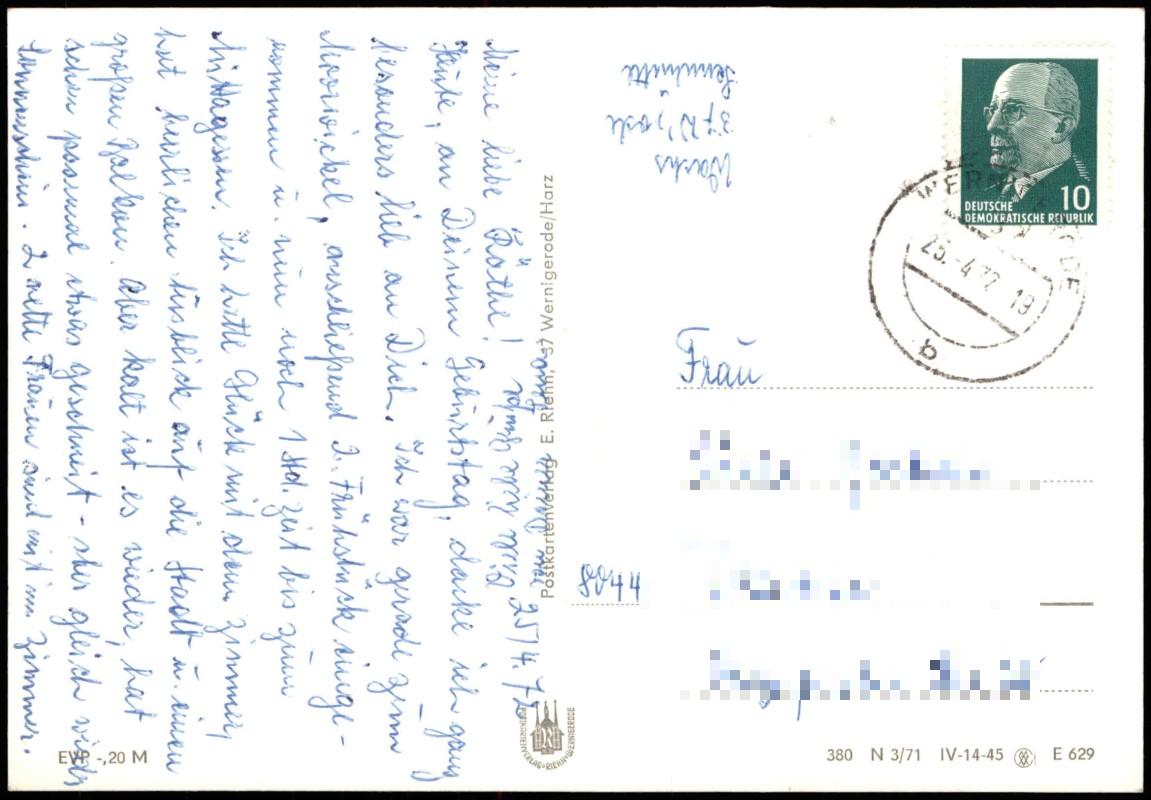 25/4.72
Meine liebe Käthe!
Heute, an Deinem Geburtstag, denke ich ganz
besonders lieb an Dich. Ich war gerade zum
Moorwickel, anschließend 2. Frühstück einge-
nommen u. nun noch 1 Std. Zeit bis zum
Mittagessen. Ich hatte Glück mit dem Zimmer,
hat herrlichen Ausblick auf die Stadt u. einen
großen Balkon. Aber kalt ist es wieder, hat
schon paarmal etwas geschneit - aber gleich wieder
Sonnenschein. 2 nette Frauen sind mit im Zimmer.
37
Postkartenverlag E. Riehn, 37 Wernigerode/Harz
POSTKARTENVERLAG·RIEHN·WERNIGERODE
EVP -,20 M
10
DEUTSCHE
DEMOKRATISCHE REPUBLIK
WERNIGERODE
25.-4.72 19
a
Frau
8044
380 N 3/71 IV-14-45 E 629